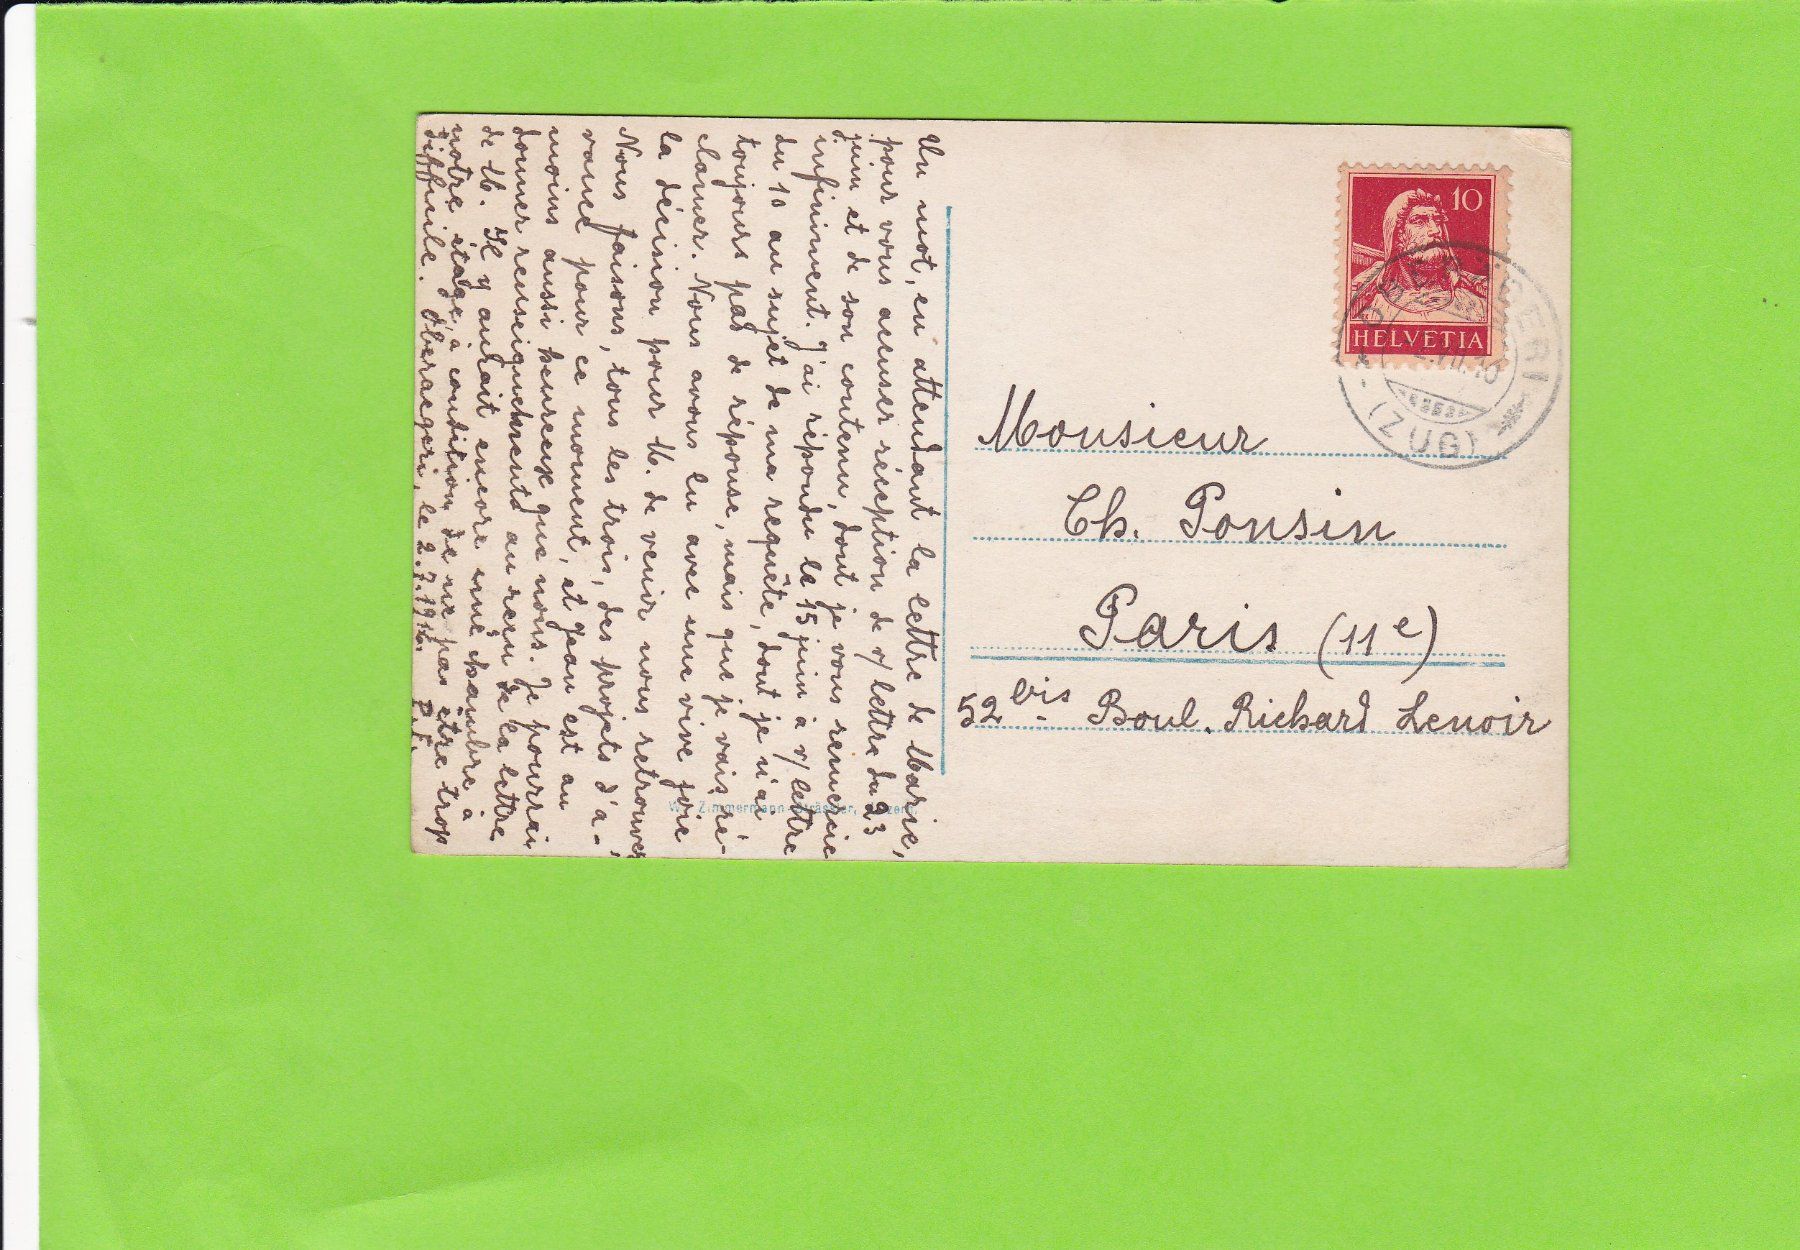 Un mot, en attendant la lettre de Marie,
pour vous accuser réception de v/ lettre du 23
juin et de son contenu, dont je vous remercie
infiniment. J'ai répondu le 15 juin à v/ lettre
du 10 au sujet de ma requête, dont je n'ai
toujours pas de réponse, mais que je vais ré-
clamer. Nous avons lu avec une vive joie
la décision pour M. de venir nous retrouver.
Nous faisons, tous les trois, des projets d'a-
vance pour ce moment, et Jean est au
moins aussi heureux que nous. Je pourrai
donner renseignements au reçu de la lettre
de M. Il y aurait encore une chambre à
notre étage, à condition de ne pas être trop
difficile. Oberaegeri, le 2.7.1916. P.F.
10
HELVETIA
OBERÄGERI
(ZUG)
Monsieur
Ch. Ponsin
Paris (11e)
52 bis Boul. Richard Lenoir
Zimmermann